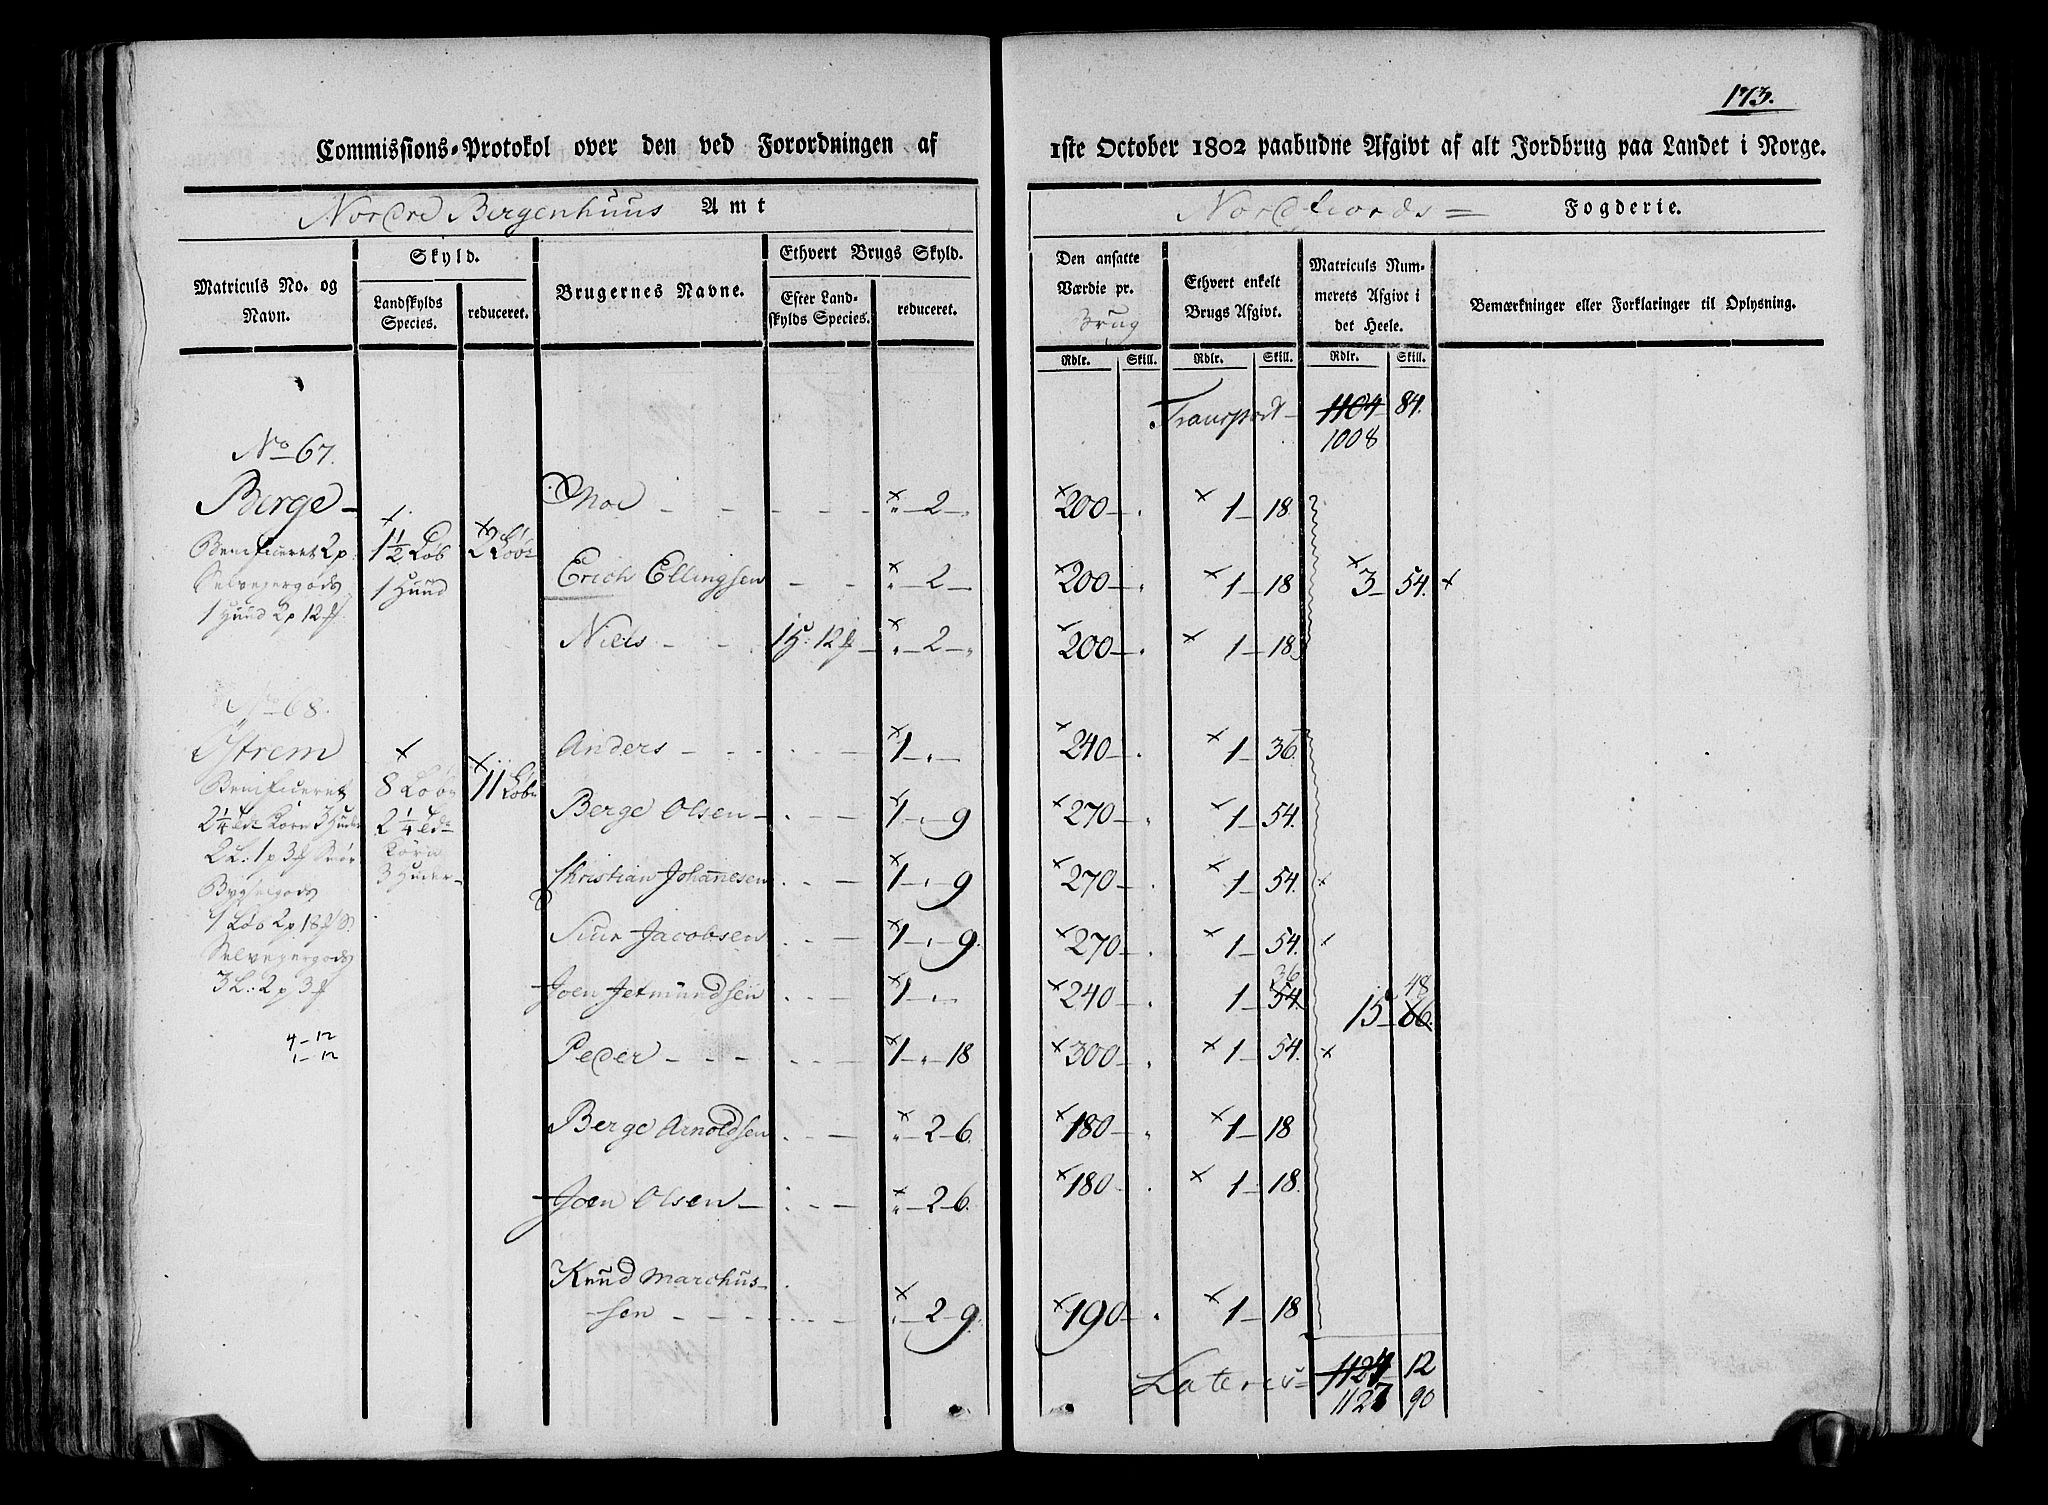 173.
Commissions-Protokol over den ved Forordningen af 1ste October 1802 paabudne Afgivt af alt Jordbrug paa Landet i Norge.
Nordre Bergenhuus Amt
Nordfiords = Fogderie.
Matriculs No. og Navn.
Skyld.
Landskylds Species.
reduceret.
Brugernes Navne.
Ethvert Brugs Skyld.
Efter Landskylds Species.
reduceret.
Den ansatte Værdie pr. Brug
Ethvert enkelt Brugs Afgivt.
Matriculs Nummerets Afgivt i det Heele.
Bemærkninger eller Forklaringer til Oplysning.
Rdlr. Skill. Rdlr. Skill. Rdlr. Skill.
Transport – 1104 84.
1008
No 67.
Berge –
Benificeret 2 p.
Selveyergods
1 Huud 2 p 12
1½ Løb
1 Huud
2 Løb
– – – – 2 – 200 – 1 – 18
Erich Ellingsen – – 2 – 200 – 1 – 18 3 – 54.
Niels – – 2 – 200 – 1 – 18
No 68.
Ystrem
Benificeret
2¼ Korn 3 Huder
Bygselgods
1 Løb 2 p 18
Selveyergods
3 L: 2 p 3
4 – 12
1 – 12
8 Løb
2¼
Korn
3 Huder –
11 Løb
Anders – – – 1 – 240 – 1 – 36
Berge Olsen – – – 1 – 9 270 – 1 – 54.
Christian Johannesen – – 1 – 9 270 – 1 – 54.
Siur Jacobsen – – 1 – 9. 270 – 1 – 54.
Joen Jetmundsen – – 1 – 240 – 1 – 54. 36 15 – 66. 48
Peder – – – – 1 – 18 300 – 1 – 54.
Berge Arnoldsen – – 2 – 6. 180 – 1 – 18
Joen Olsen – – – 2 – 6. 180 – 1 – 18.
Knud Marchus-
sen – – – – 2 – 9. 190 – 1 – 18
Lateris = 1124 12
1127 90